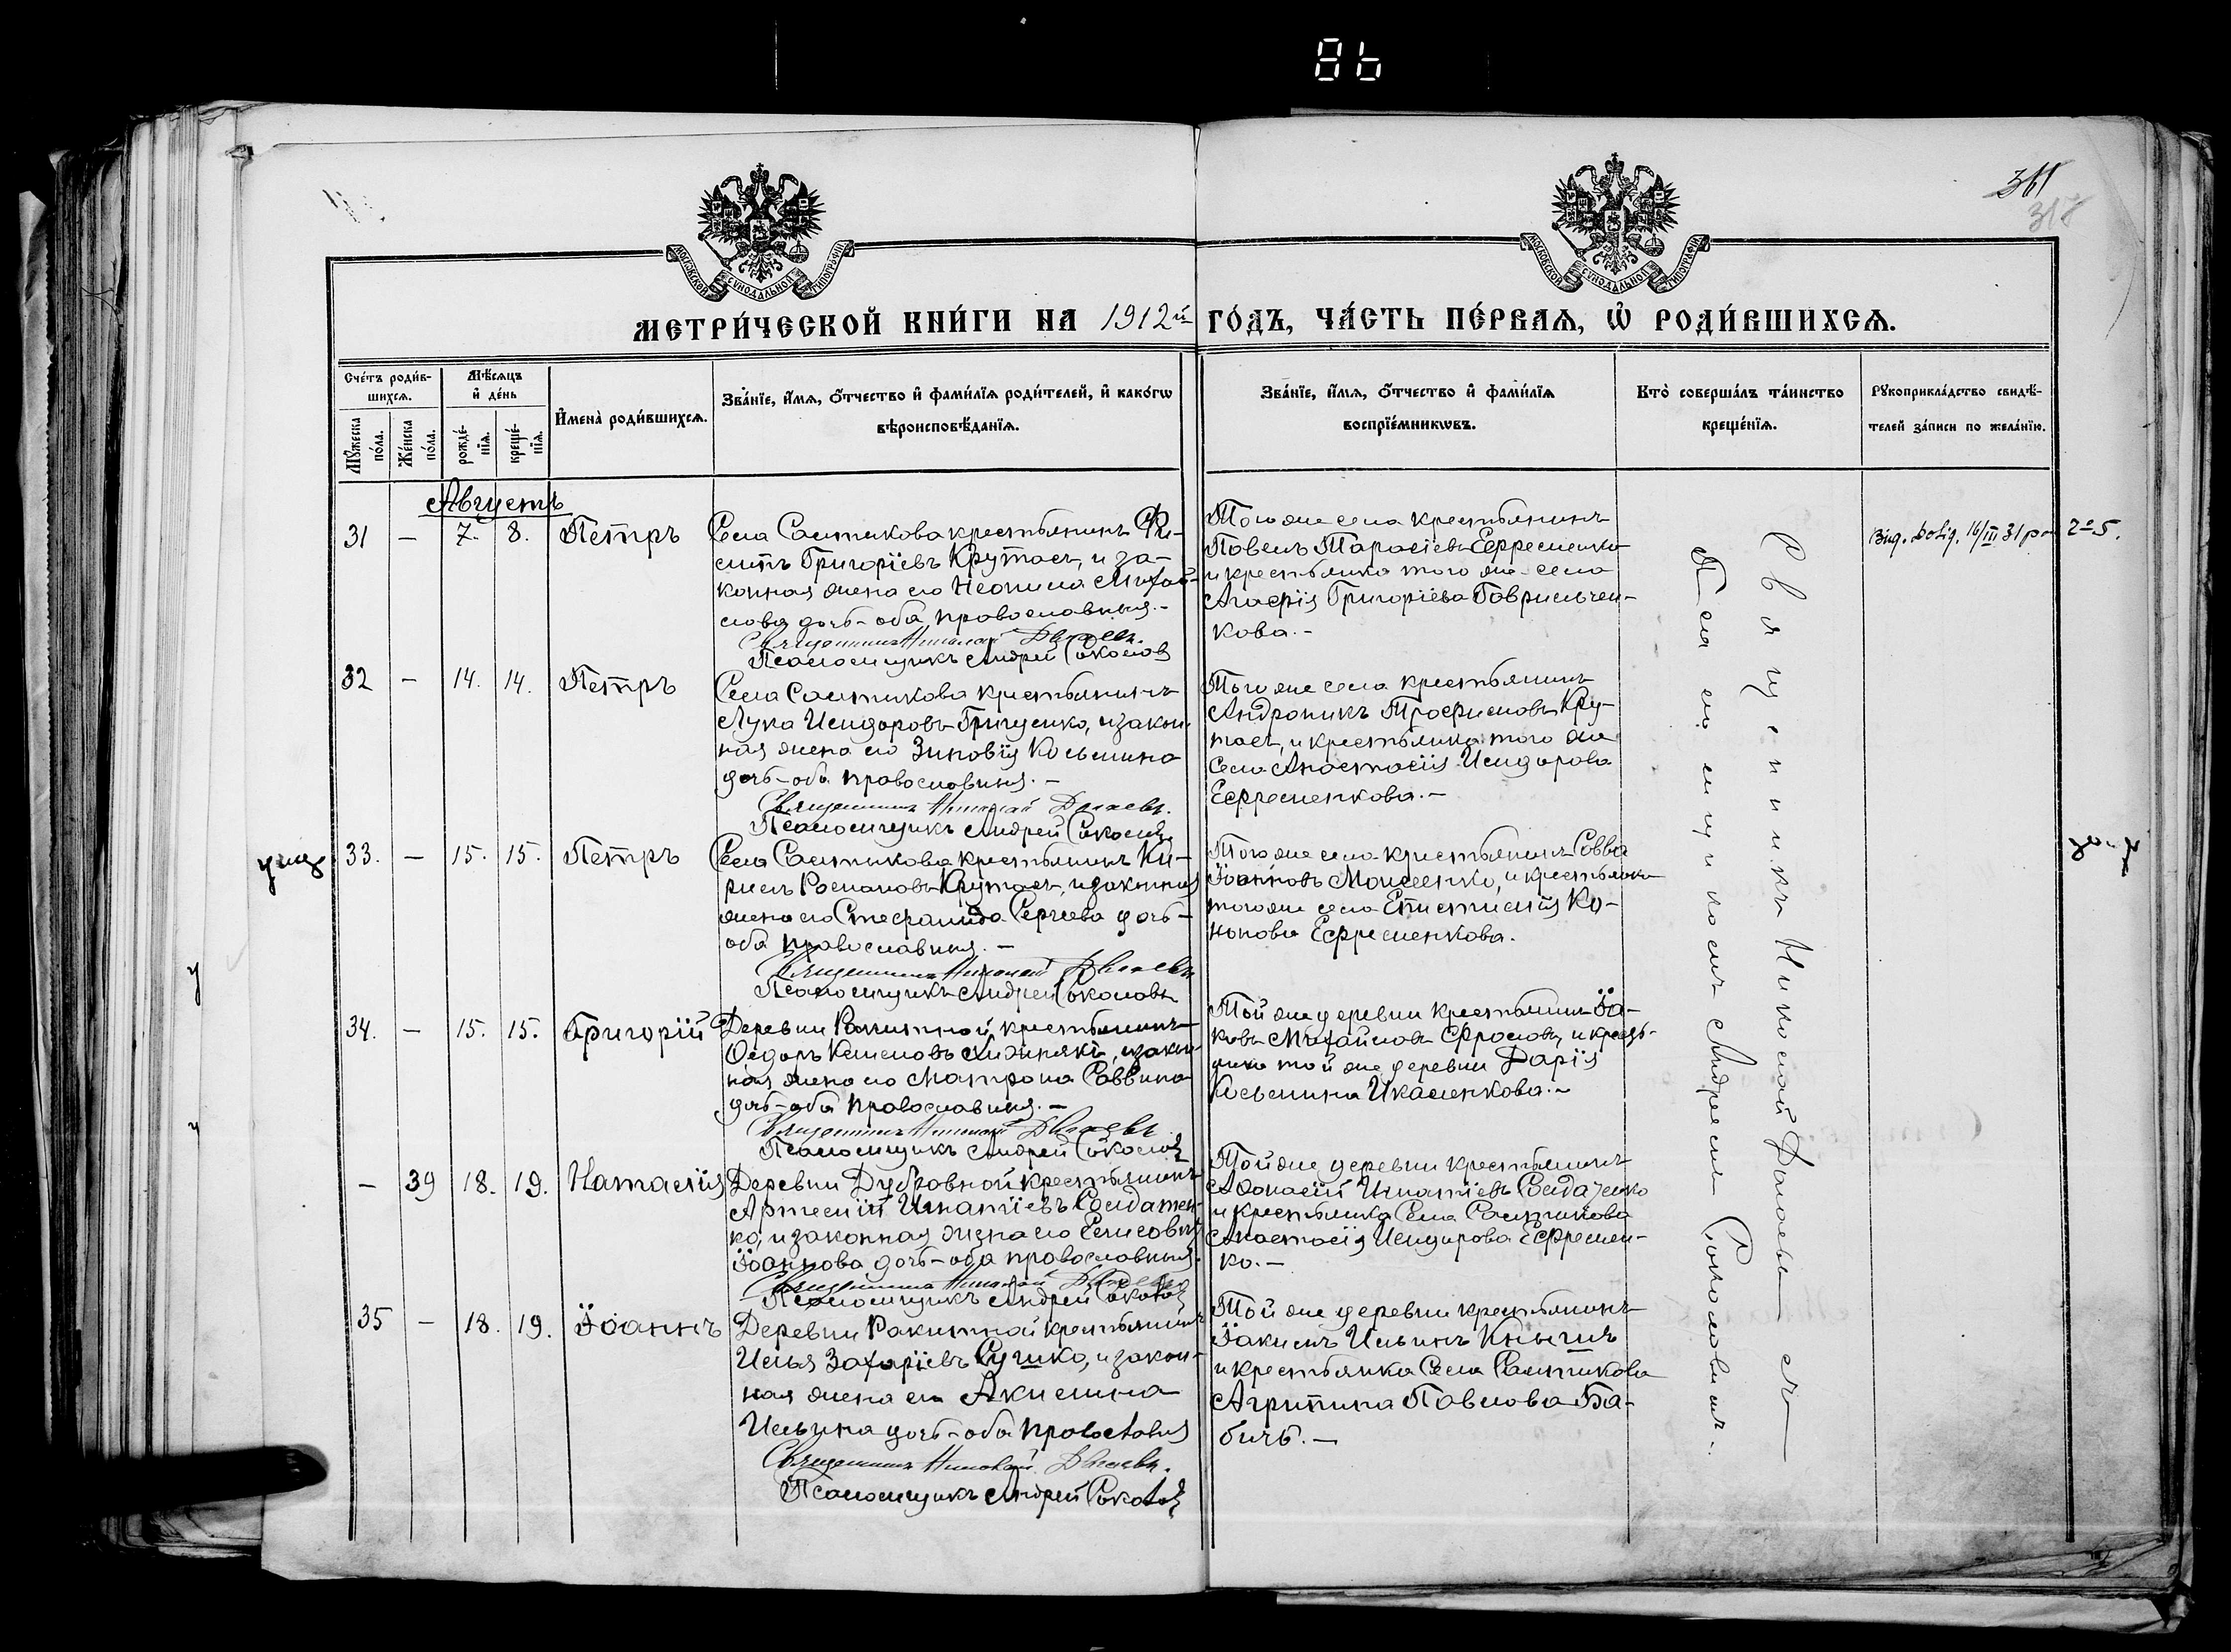 86
361
318
МОСКОВСКОЙ СѴНОДАЛЬНОЙ ТИПОГРАФІИ
МОСКОВСКОЙ СѴНОДАЛЬНОЙ ТИПОГРАФІИ
МЕТРИ́ЧЕСКОЙ КНИ́ГИ НА 1912й ГО́ДЪ, ЧА́СТЬ ПЕ́РВАЯ, Ѡ҆ РОДИ́ВШИХСЯ.
Сче́тъ роди́в-
шихся.
Мѣ́сяцъ
и҆ де́нь
Мꙋ́жеска
по́ла.
Же́нска
по́ла.
рожде́-
нїя.
креще́-
нїя.
И҆мена̀ роди́вшихся.
Зва́нїе, и҆́мя, ѻ҆́тчество и҆ фами́лїя роди́телей, и҆ како́гѡ
вѣроисповѣ́данїя.
Зва́нїе, и҆́мя, ѻ҆́тчество и҆ фами́лїя
воспрїе́мникѡвъ.
Кто̀ соверша́лъ та́инство
креще́нїя.
Рꙋкоприкла́дство свидѣ́-
телей за́писи по жела́нїю.
Августъ
31 — 7. 8. Петръ
Села Салтыкова крестьянинъ Фи-
липъ Григорїевъ Крутась, и за-
конная жена его Неонила Михай-
лова дочь - оба православныя. -
Священникъ Николай
Псаломщикъ Андрей Соколов
Того же села крестьянинъ
Павелъ Тарасїевъ Ефременко
и крестьянка того же села
Агафїя Григорїева Гаврильчен-
кова. -
16/III 31 р
2-5.
32 — 14. 14. Петръ
Села Салтыкова крестьянинъ
Лука Исидоровъ Грищенко, и закон-
ная жена его Зиновїя Косьмина
дочь - оба православныя. -
Священникъ Николай
Псаломщикъ Андрей Соколовъ
Того же села крестьянинъ
Андроникъ Трофимовъ Кру-
тась, и крестьянка того же
села Анастасїя Исидорова
Ефременкова. -
33. — 15. 15. Петръ
Села Салтыкова крестьянинъ Ки-
рилъ Романовъ Крутась, и законная
жена его Стефанида Сергїева дочь -
оба православныя. -
Священникъ Николай
Псаломщикъ Андрей Соколовъ
Того же села крестьянинъ Савва
Їоанновъ Моисеенко, и крестьянка
того же села Епистимїя Ко-
нонова Ефременкова.
34. — 15. 15. Григорїй
Деревни Ракитной крестьянинъ
Ѳедоръ Хижнякъ, и закон-
ная жена его Матрона Саввина
дочь - оба православныя. -
Священникъ Николай
Псаломщикъ Андрей Соколов
Той же деревни крестьянинъ Їа-
ковъ Михайловъ Фроловъ, и кресть-
янка той же деревни Дарїя
Косьмина Икаленкова. -
— 39 18. 19. Наталїя
Деревни Дубровной крестьянинъ
Артемїй Игнатїевъ Солдатен-
ко, и законная жена его Елисавета
Їоаннова дочь - оба православныя.
Священникъ Николай
Псаломщикъ Андрей Соколов
Той же деревни крестьянинъ
Аѳанасїй Игнатїевъ Солдатенко
и крестьянка Села Салтыкова
Анастасїя Исидорова Ефремен-
ко. -
35 — 18. 19. Їоаннъ
Деревни Ракитной крестьянинъ
Илья Захарїевъ Сушко, и закон-
ная жена его Акилина
Ильина дочь - оба православныя
Священникъ Николай
Псаломщикъ Андрей Соколов
Той же деревни крестьянинъ
Їакимъ Ильинъ Кнышъ
и крестьянка Села Салтыкова
Агрипина Павлова Ба-
бичъ. -
Священникъ Николай
Псаломщикомъ Андреемъ Соколовымъ.